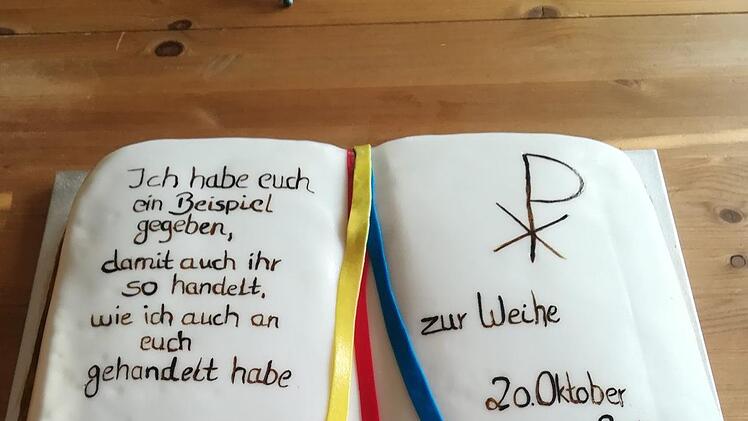 Ich habe euch
ein Beispiel
gegeben,
damit auch ihr
so handelt,
wie ich auch an
euch
gehandelt habe
zur Weihe
20. Oktober